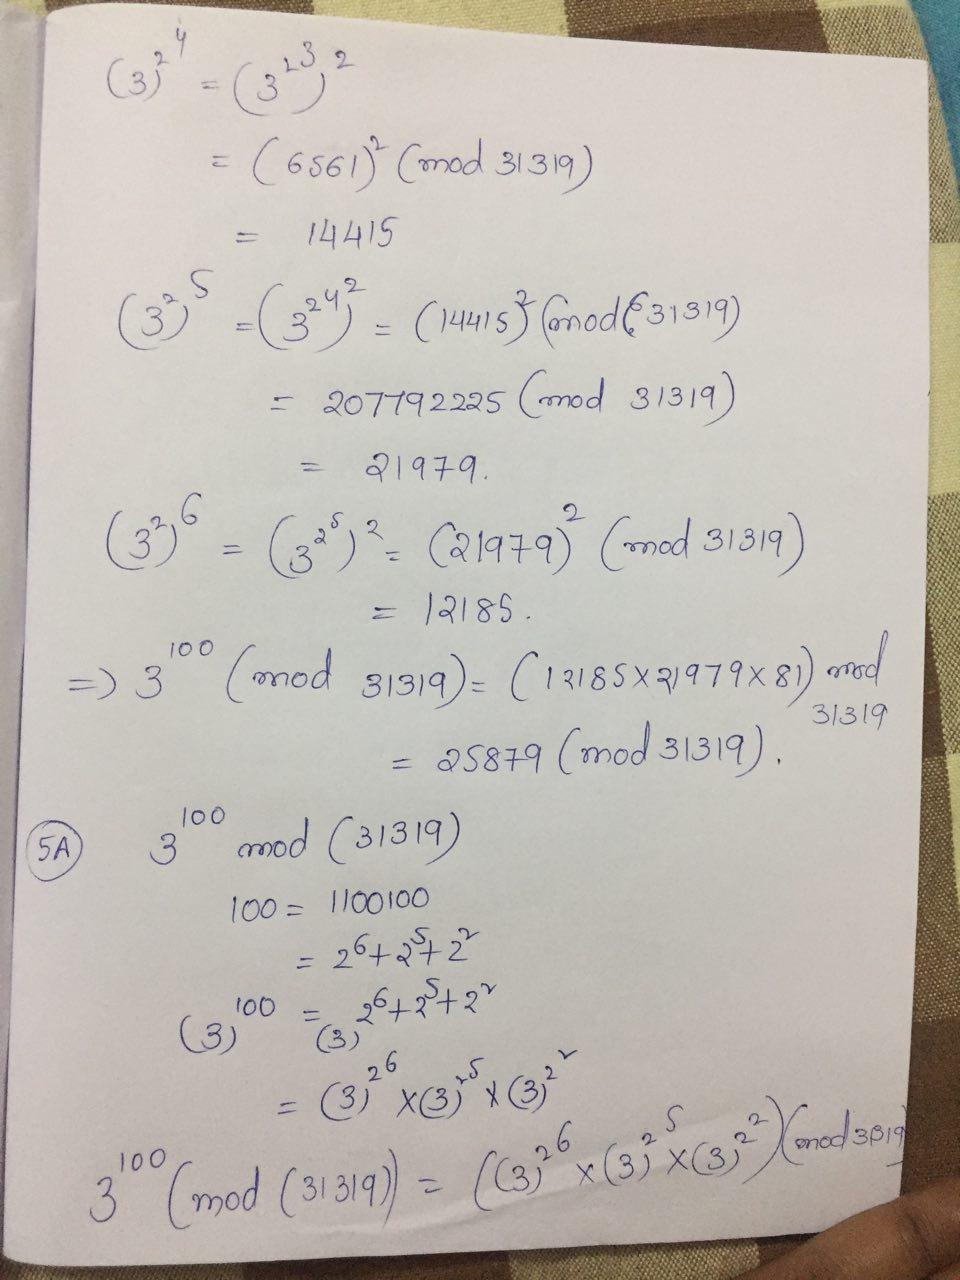 (3)^2^4 = (3^2^3)^2
= (6561)^2 (mod 31319)
= 14415
(3^2)^5 = (3^2^4)^2 = (14415)^2 (mod 31319)
= 207792225 (mod 31319)
= 21979.
(3^2)^6 = (3^2^5)^2 = (21979)^2 (mod 31319)
= 12185.
=> 3^100 (mod 31319) = (12185×21979×81) mod 31319
= 25879 (mod 31319).
5A 3^100 mod (31319)
100 = 1100100
= 2^6+2^5+2^2
(3)^100 = (3)^2^6+2^5+2^2
= (3)^2^6 × (3)^2^5 × (3)^2^2
3^100 (mod (31319)) = ((3)^2^6 × (3)^2^5 × (3)^2^2) (mod